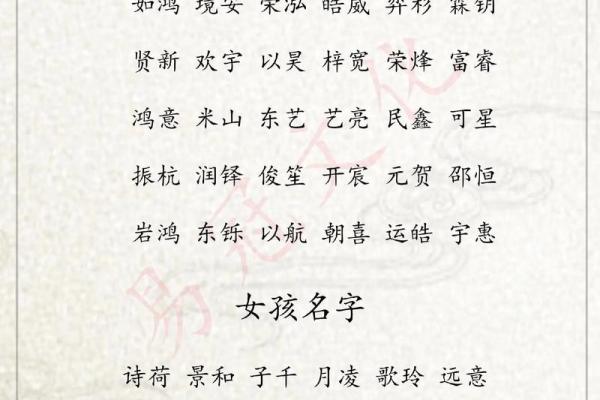 如鸿 境安 荣泓 皓威 弈杉 霖钥
贤新 欢宇 以昊 梓宽 荣烽 富睿
鸿意 米山 东艺 艺亮 民鑫 可星
振杭 润铎 俊笙 开宸 元贺 邵恒
岩鸿 东铄 以航 朝喜 运皓 宇惠
女孩名字
诗荷 景和 子千 月凌 歌玲 远意
易冠文化